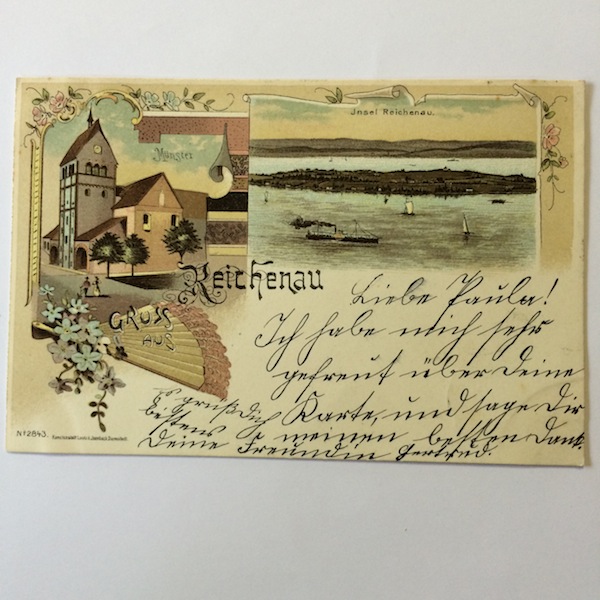 Münster
Jnsel Reichenau.
Reichenau
GRUSS
AUS
Liebe Paula!
Ich habe mich sehr
gefreut über Deine
Karte, und sage Dir
meinen besten Dank.
Es grüßt Dich
bestens
Deine Freundin Gertrud.
No 2843.